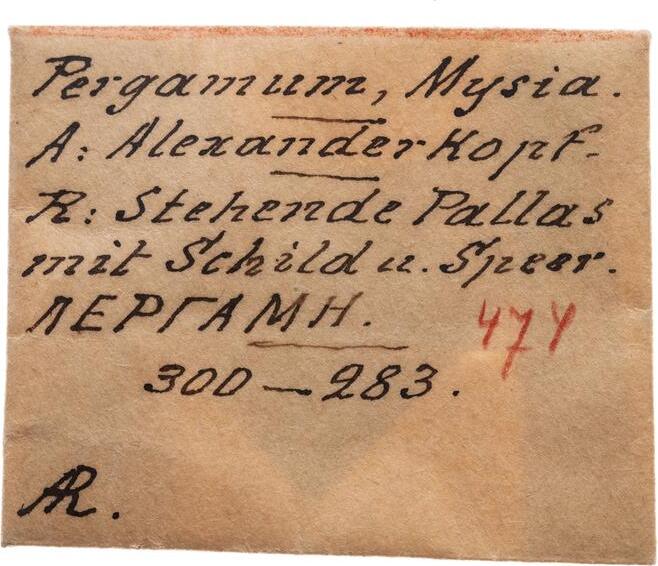 Pergamum, Mysia.
A: Alexanderkopf.
R: Stehende Pallas
mit Schild u. Speer.
ΠΕΡΓΑΜΗ.
474
300 — 283.
ÆR.